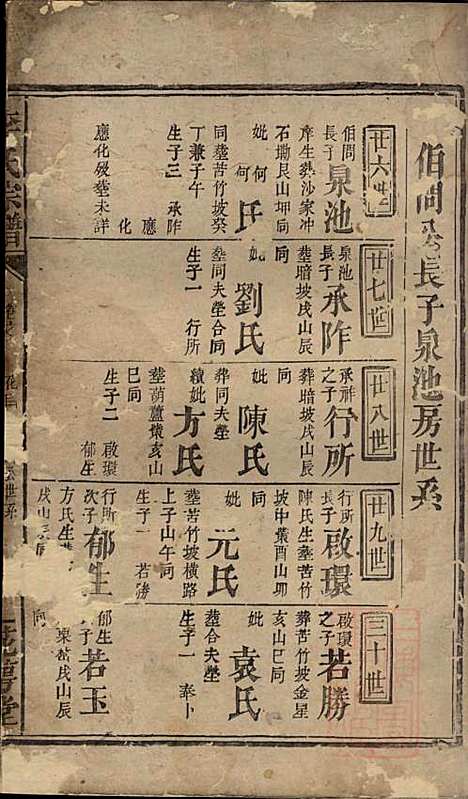 伯問公長子泉池房世系
廿六世
伯問
長子
泉池
庠生葬沙家冲
石塘艮山坤同
妣何氏
同塋苦竹坡癸
丁兼子午
生子三 承阼
應
化
應化歿葬未詳
廿七世
泉池
長子
承阼
葬暗坡戌山辰
同
妣劉氏
葬同夫塋合同
生子一 行所
廿八世
承祚
之子
行所
葬暗坡戌山辰
同
妣陳氏
葬同夫塋
續妣方氏
葬葫蘆
亥山
巳同
生子二 啟環
郁生
廿九世
行所
長子
啟環
陳氏生葬苦竹
坡中葉酉山卯
同
妣元氏
葬苦竹坡橫路
上子山午同
生子一 若勝
行所
次子
郁生
方氏生葬
戌山
同
三十世
啟環
之子
若勝
葬苦竹坡金星
亥山巳同
妣袁氏
葬合夫塋
生子一 奉卜
郁生
子
若玉
戌山辰
氏宗譜
世系
萼堂